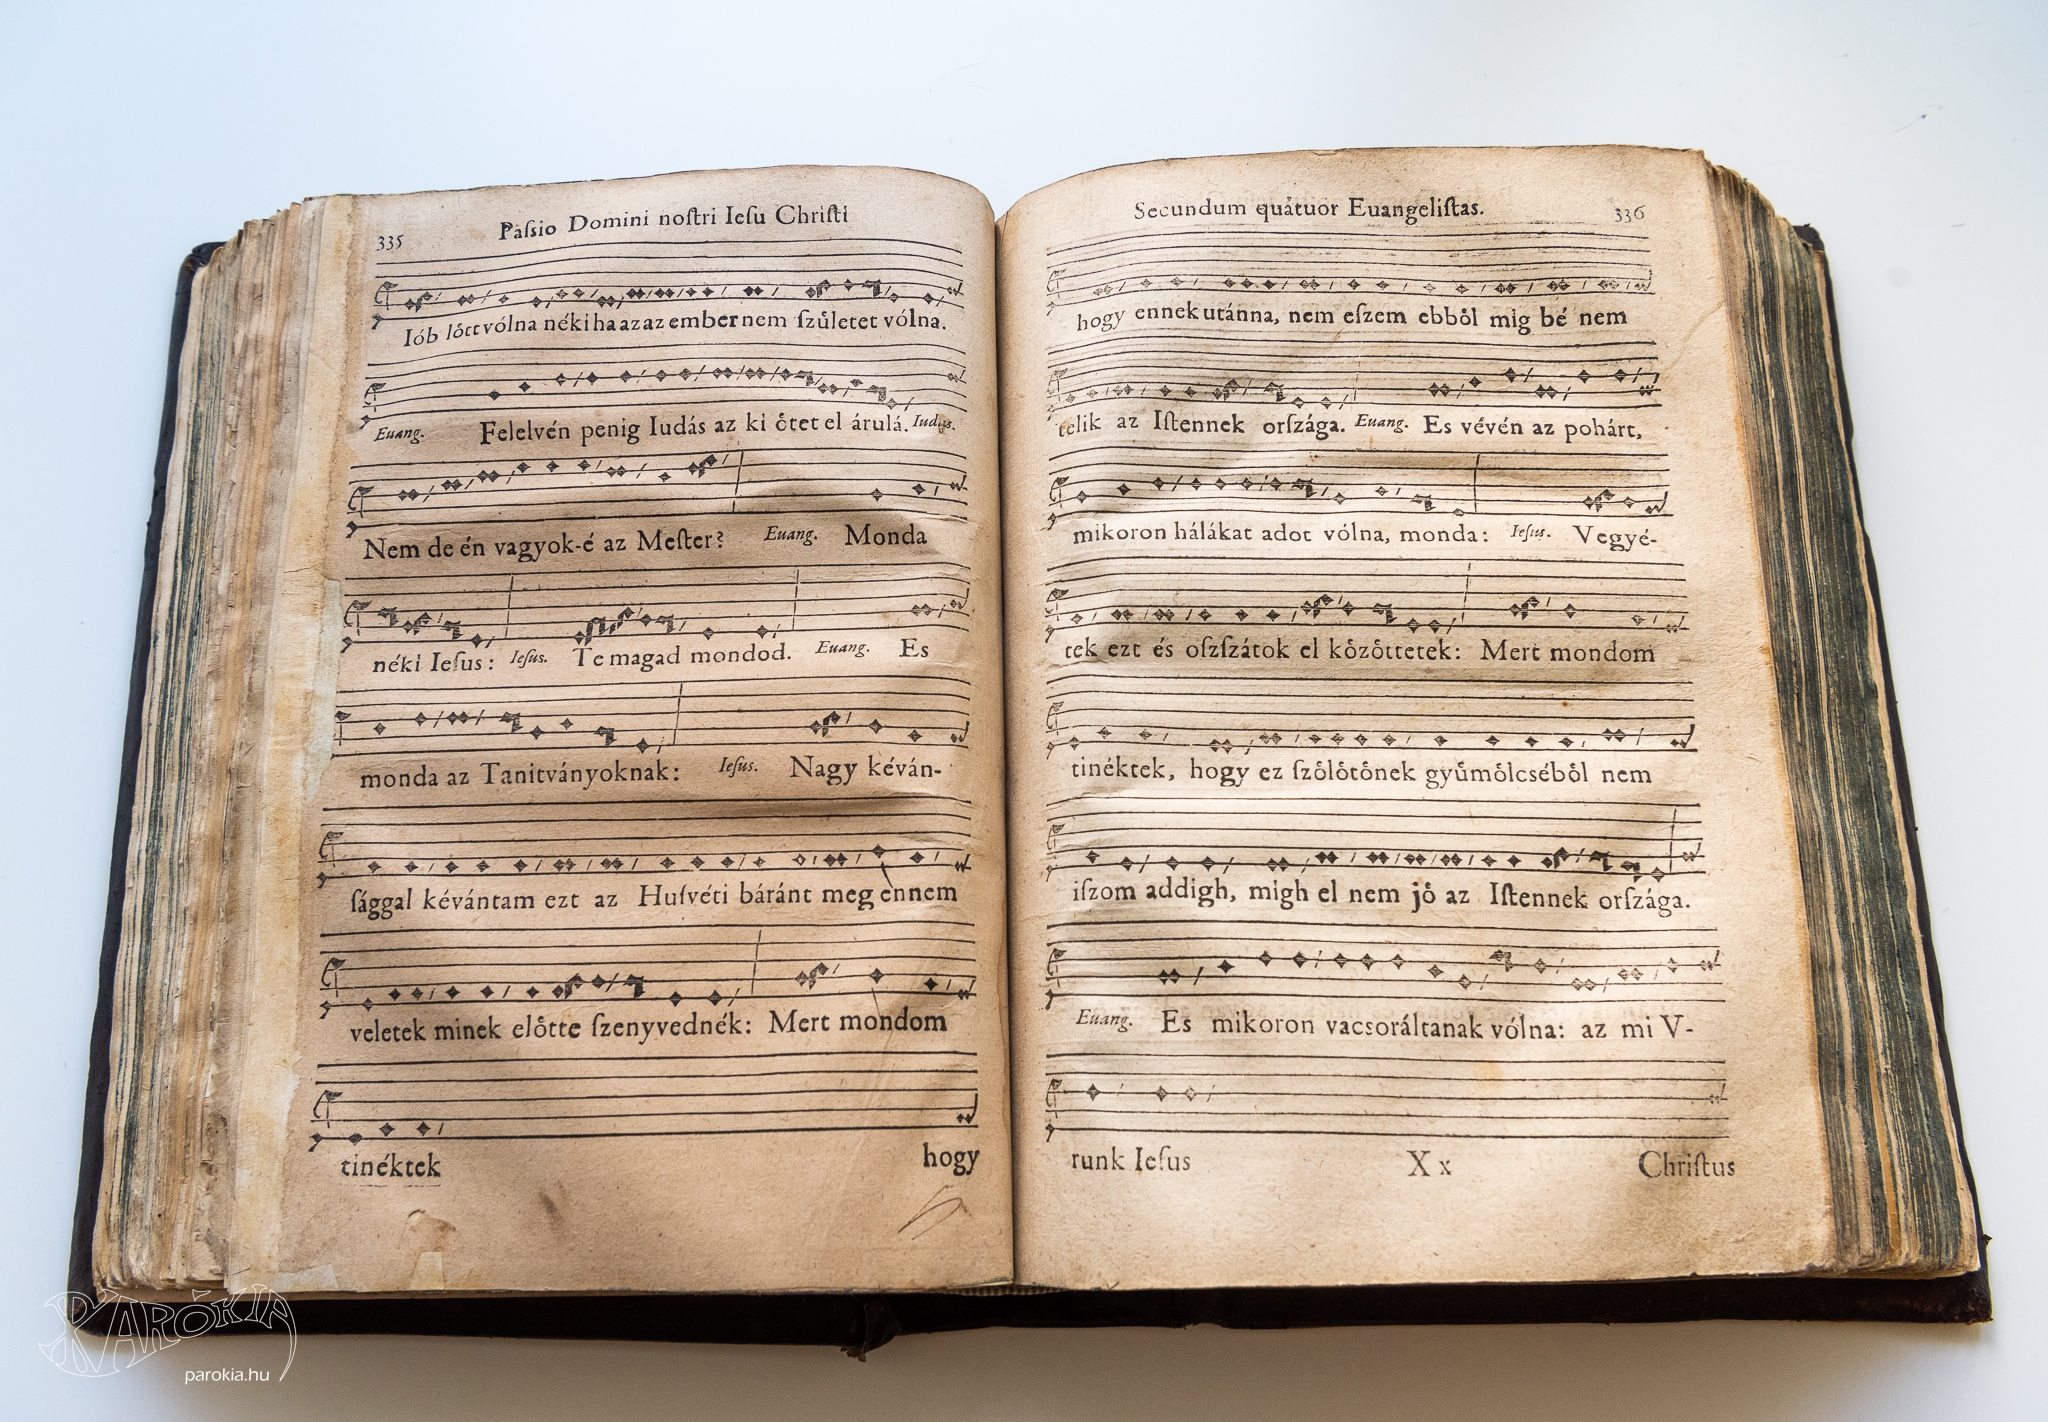 335 Passio Domini nostri Iesu Christi
Iób lo̊tt vólna néki ha az az ember nem ſzu̇letet vólna.
Euang. Felelvén penig Iudás az ki o̊tet el árulá. Iudas.
Nem de én vagyok-é az Meſter? Euang. Monda
néki Ieſus: Ieſus. Te magad mondod. Euang. Es
monda az Tanitványoknak: Ieſus. Nagy kéván-
ſággal kévántam ezt az Huſvéti báránt meg ennem
veletek minek elo̊tte ſzenyvednék: Mert mondom
tinéktek hogy
Secundum quátuor Euangeliſtas. 336
hogy ennek utánna, nem eſzem ebbo̊l mig bé nem
telik az Iſtennek orſzága. Euang. Es vévén az pohárt,
mikoron hálákat adot vólna, monda: Ieſus. Vegyé-
tek ezt és oſzſzátok el ko̊zo̊ttetek: Mert mondom
tinéktek, hogy ez ſzo̊lo̊to̊nek gyu̇mo̊lcsébo̊l nem
iſzom addigh, migh el nem jo̊ az Iſtennek orſzága.
Euang. Es mikoron vacsoráltanak vólna: az mi V-
runk Ieſus X x Chriſtus
PARÓKIA
parokia.hu